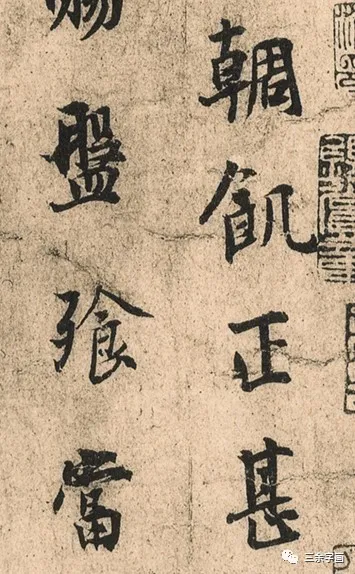 輖飢正甚
盤飱當
三余字画